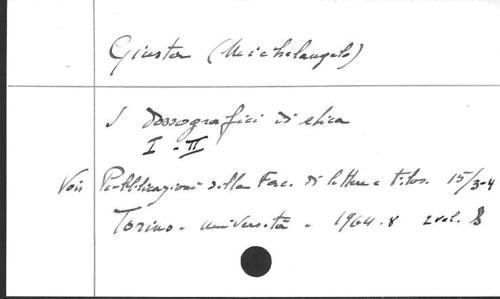 Giusta (Michelangelo)
I dossografici di etica
I - II
Voir Pubblicazioni della Fac. di lettere e filos. 15/3-4
Torino. Università. 1964. 8 2 vol. 8